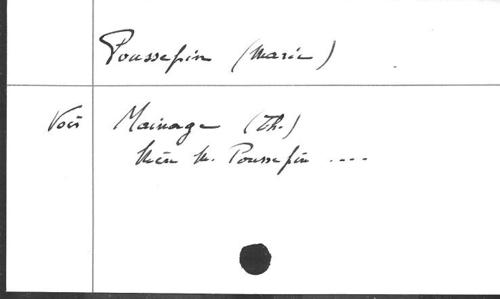 Poussepin (Marie)
Voir Mainage (Th.)
Mère M. Poussepin ....